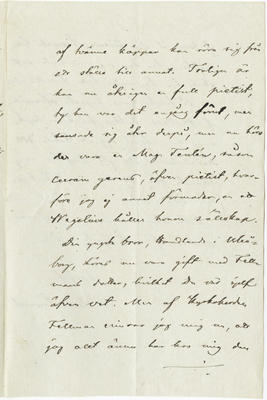 af tvänne käppar kan röra sig från
ett ställe till annat. Troligen är
han nu åhriger en full pietist,
ty han var det ungång förut, men
sansade sig åter derpå, men nu hörs
der vara en Mag. Tentén, såsom
curam gerens, äfven pietist, hvar-
före jag ej annat förmodar, än att
Wegelius håller honom sällskap.
Din yngste bror, Handlande i Uleå-
borg, höres nu vara gift med Fell-
mans dotter, hvilket Du väl sjelf
äfven vet. Men af Kyrkoherden
Fellman erinrar jag mig nu, att
jag allt ännu har hos mig den